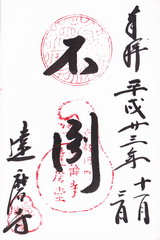 奉拝 平成廿二年十一月三日
不倒
達磨寺